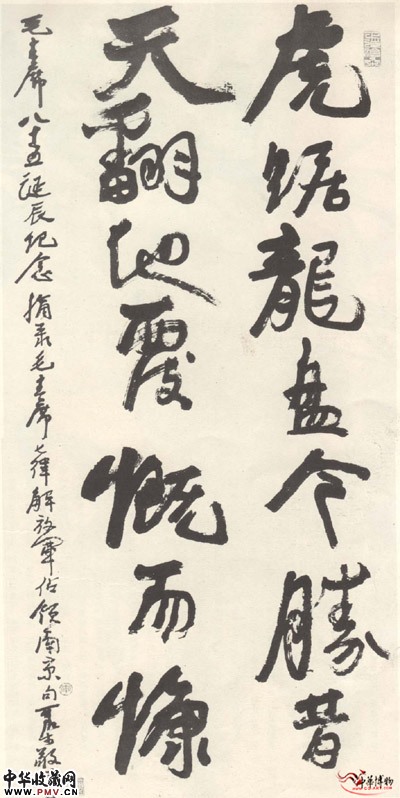 虎踞龍盘今勝昔
天翻地覆慨而慷
毛主席八十五诞辰纪念摘录毛主席七律解放军佔领南京句
中华收藏网
WWW.PMV.CN
中华博物